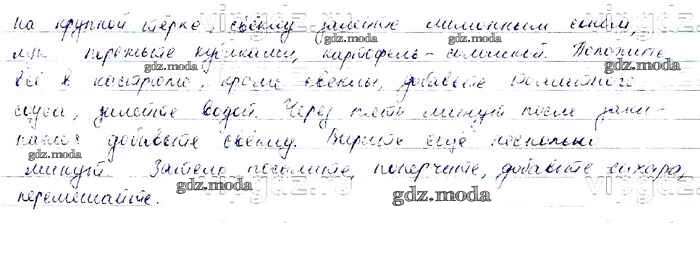 на крупной тёрке, свёклу залейте лимонным соком,
лук порежьте кубиками, картофель - соломкой. Положите
всё в кастрюлю, кроме свеклы, добавьте томатного
соуса, залейте водой. Через пять минут после заки-
пания добавьте свёклу. Варить ещё несколько
минут. Затем посолите, поперчите, добавьте сахара,
перемешайте.
gdz.moda
gdz.moda
gdz.moda
gdz.moda
gdz.moda
gdz.moda
gdz.moda
gdz.moda